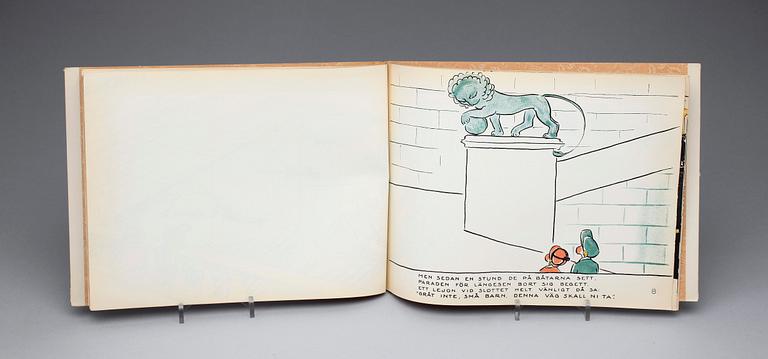 MEN SEDAN EN STUND DE PÅ BÅTARNA SETT,
PARADEN FÖR LÄNGESEN BORT SIG BEGETT.
ETT LEJON VID SLOTTET HELT VÄNLIGT DÅ SA:
"GRÅT INTE, SMÅ BARN, DENNA VÄG SKALL NI TA."
8